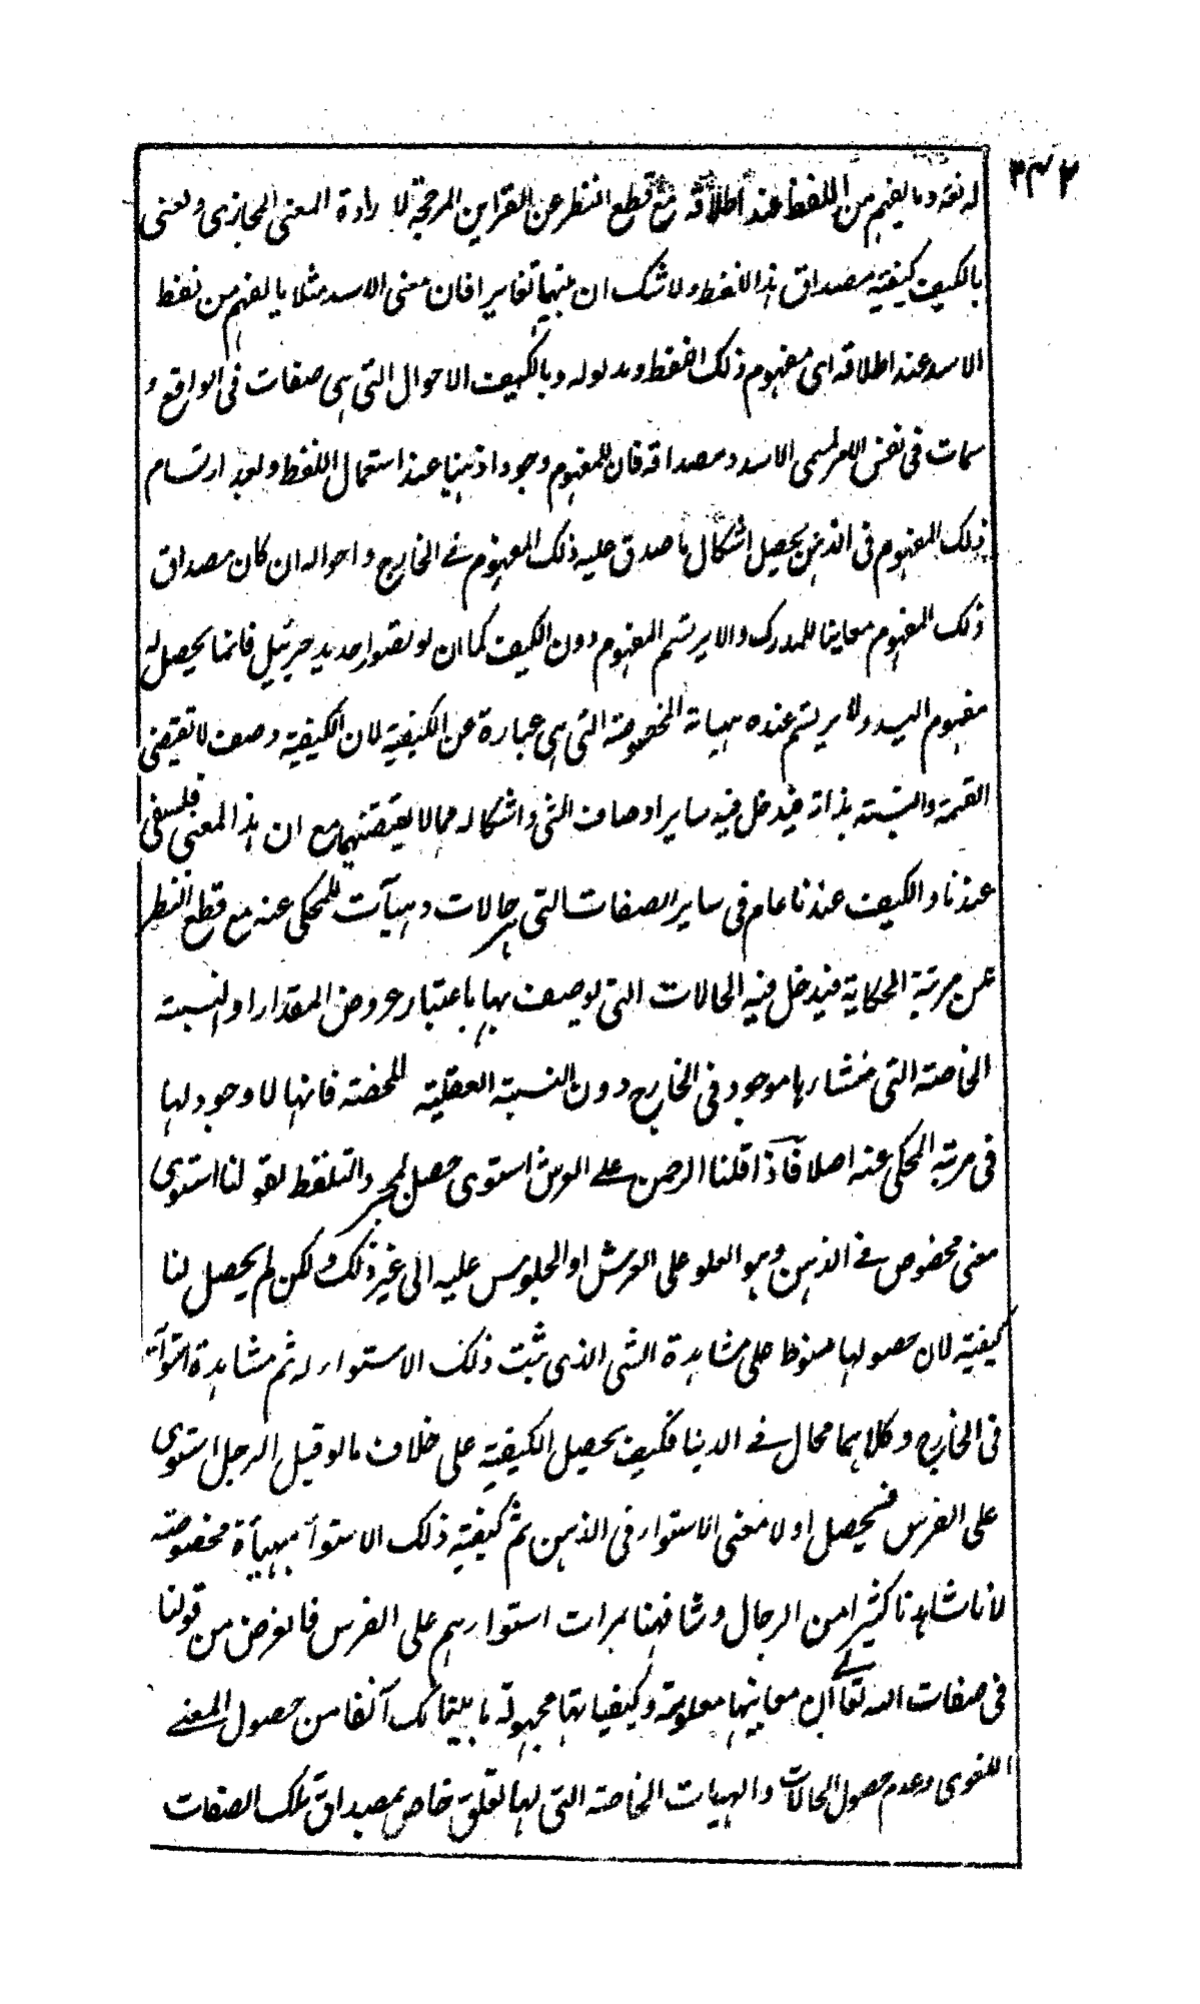 ٣٤٢
له لغة وما يفهم من اللفظ عند اطلاقه مع قطع النظر عن القراين المرجحة لا رادة المعنى المجازى ونعنى
بالكيف كيفية مصداق هذا اللفظ ولا شك ان بينهما تغايرا فان معنى الاسد مثلا ما يفهم من لفظ
الاسد عند اطلاقه اى مفهوم ذلك اللفظ ومدلوله وبالكيف الاحوال التى هى صفات فى الواقع و
سمات فى نفس الامر لمسمى الاسد ومصداقه فان للمفهوم وجودا ذهنيا عند استعمال اللفظ وبعد ارتسام
ذلك المفهوم فى الذهن يحصل اشكال ما صدق عليه ذلك المفهوم فى الخارج واحواله ان كان مصداق
ذلك المفهوم معاينا للمدرك والا يرتسم المفهوم دون الكيف كما ان لو تصور احد يد جبرئيل فانما يحصل له
مفهوم اليد ولا يرتسم عنده هيأته المخصوصة التى هى عبارة عن الكيفية لان الكيفية وصف لا تقتضى
القسمة والنسبة بذاته فيدخل فيه ساير اوصاف الشئ واشكاله مما لا يقتضيهما مع ان هذا المعنى فلسفى
عندنا والكيف عندنا عام فى ساير الصفات التى هى حالات وهيآت للمحكى عنه مع قطع النظر
عن مرتبة الحكاية فيدخل فيه الحالات التى يوصف بها باعتبار عروض المقدار او النسبة
الخاصة التى منشارها موجود فى الخارج دون النسبة العقلية المحضة فانها لا وجود لها
فى مرتبة المحكى عنه اصلا فاذا قلنا الرحمن على العرش استوى حصل بمجرد التلفظ بقولنا استوى
معنى مخصوص فى الذهن وهو العلو على العرش او الجلوس عليه الى غير ذلك ولكن لم يحصل لنا
كيفية لان حصولها منوط على مشاهدة الشئ الذى ثبت ذلك الاستوار له ثم مشاهدة استوآئه
فى الخارج وكلاهما محال فى الدنيا فكيف يحصل الكيفية على خلاف ما لو قيل الرجل استوى
على الفرس فيحصل اولا معنى الاستوار فى الذهن ثم كيفية ذلك الاستوأ بهيأة مخصوصة
لانا شاهدنا كثيرا من الرجال وشافهنا بمرات استوارهم على الفرس فالغرض من قولنا
فى صفات الله تعالى ان معاينها معلومة وكيفياتها مجهولة ما بينا لك آنفا من حصول المعنى
اللغوى وعدم حصول الحالات والهيات الخاصة التى لها تعلق خاص بمصداق تلك الصفات